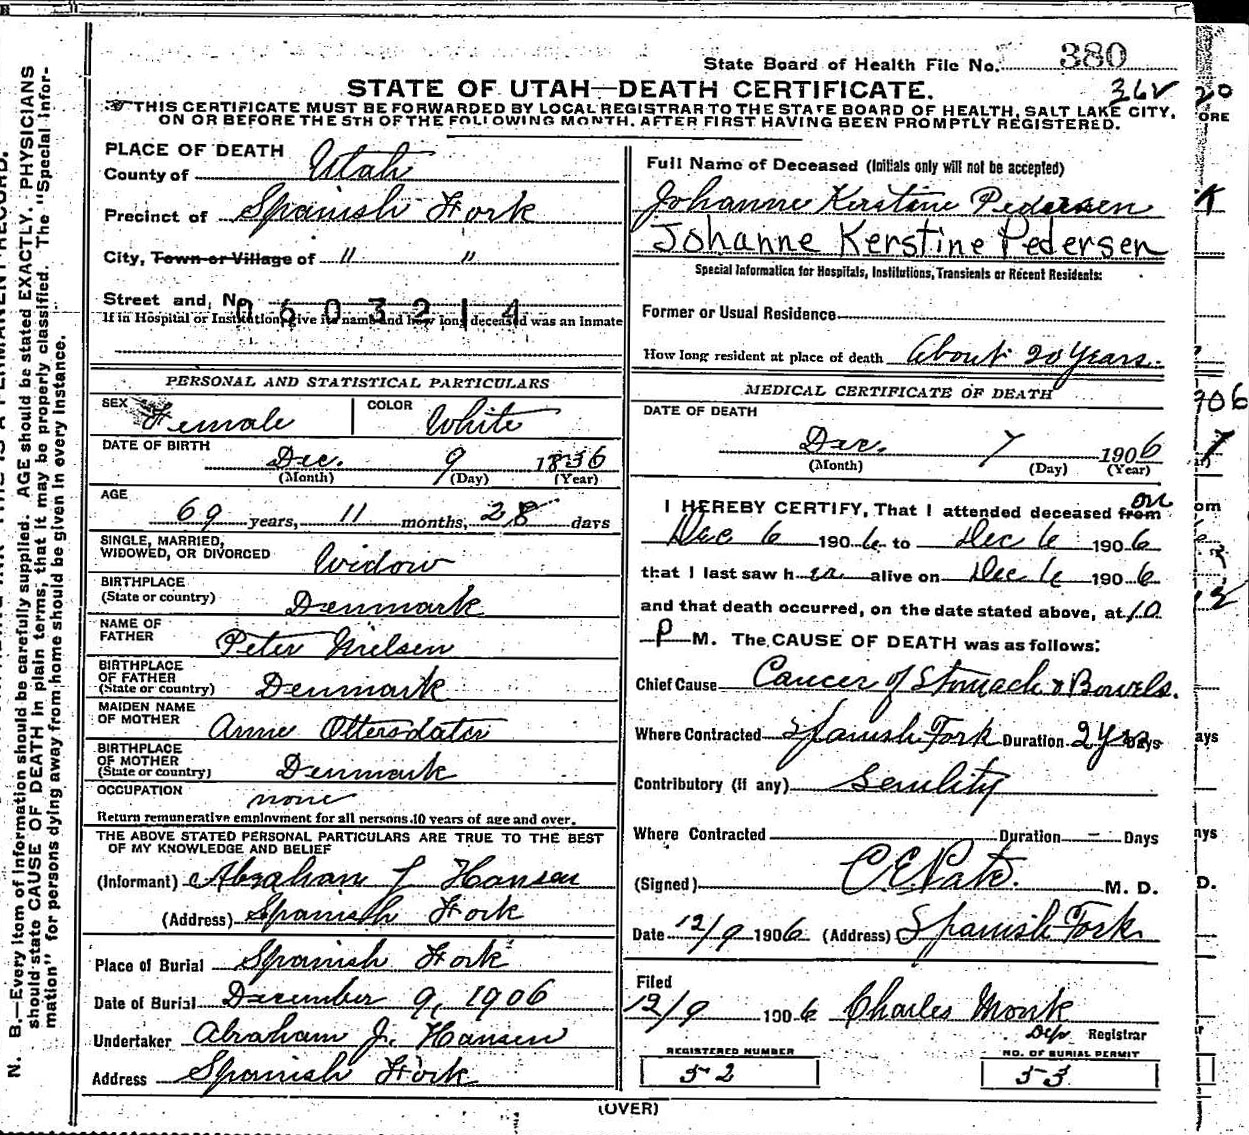 State Board of Health File No. 380
STATE OF UTAH—DEATH CERTIFICATE.
362
THIS CERTIFICATE MUST BE FORWARDED BY LOCAL REGISTRAR TO THE STATE BOARD OF HEALTH, SALT LAKE CITY,
ON OR BEFORE THE 5TH OF THE FOLLOWING MONTH, AFTER FIRST HAVING BEEN PROMPTLY REGISTERED.
PLACE OF DEATH
County of Utah
Precinct of Spanish Fork
City, Town or Village of " "
Street and No.
0603214
If in Hospital or Institution, give its name and how long deceased was an inmate
PERSONAL AND STATISTICAL PARTICULARS
SEX Female COLOR White
DATE OF BIRTH
Dec. 9 1836
(Month) (Day) (Year)
AGE
69 years, 11 months, 28 days
SINGLE, MARRIED,
WIDOWED, OR DIVORCED Widow
BIRTHPLACE
(State or country) Denmark
NAME OF
FATHER Peter Nielsen
BIRTHPLACE
OF FATHER
(State or country) Denmark
MAIDEN NAME
OF MOTHER Anne Ottersdater
BIRTHPLACE
OF MOTHER
(State or country) Denmark
OCCUPATION
none
Return remunerative employment for all persons 10 years of age and over.
THE ABOVE STATED PERSONAL PARTICULARS ARE TRUE TO THE BEST
OF MY KNOWLEDGE AND BELIEF
(Informant) Abraham J Hansen
(Address) Spanish Fork
Place of Burial Spanish Fork
Date of Burial December 9, 1906
Undertaker Abraham J. Hansen
Address Spanish Fork
Full Name of Deceased (Initials only will not be accepted)
Johanne Kerstine Pedersen
Johanne Kerstine Pedersen
Special Information for Hospitals, Institutions, Transients or Recent Residents:
Former or Usual Residence
How long resident at place of death About 20 Years.
MEDICAL CERTIFICATE OF DEATH
DATE OF DEATH
Dec. 7 1906
(Month) (Day) (Year)
on
I HEREBY CERTIFY, That I attended deceased from
Dec 6 1906 to Dec 6 1906
that I last saw her alive on Dec 6 1906
and that death occurred, on the date stated above, at 10
P M. The CAUSE OF DEATH was as follows:
Chief Cause Cancer of Stomach & Bowels.
Where Contracted Spanish Fork Duration 2 yrs Days
Contributory (if any) Senility
Where Contracted Duration — Days
(Signed) M. D.
Date 12/9 1906 (Address) Spanish Fork
Filed
12/9 1906 Charles Monk
Dep Registrar
REGISTERED NUMBER
52
NO. OF BURIAL PERMIT
53
(OVER)
N. B.—Every item of information should be carefully supplied. AGE should be stated EXACTLY. PHYSICIANS
should state CAUSE OF DEATH in plain terms, that it may be properly classified. The "Special Infor-
mation" for persons dying away from home should be given in every instance.